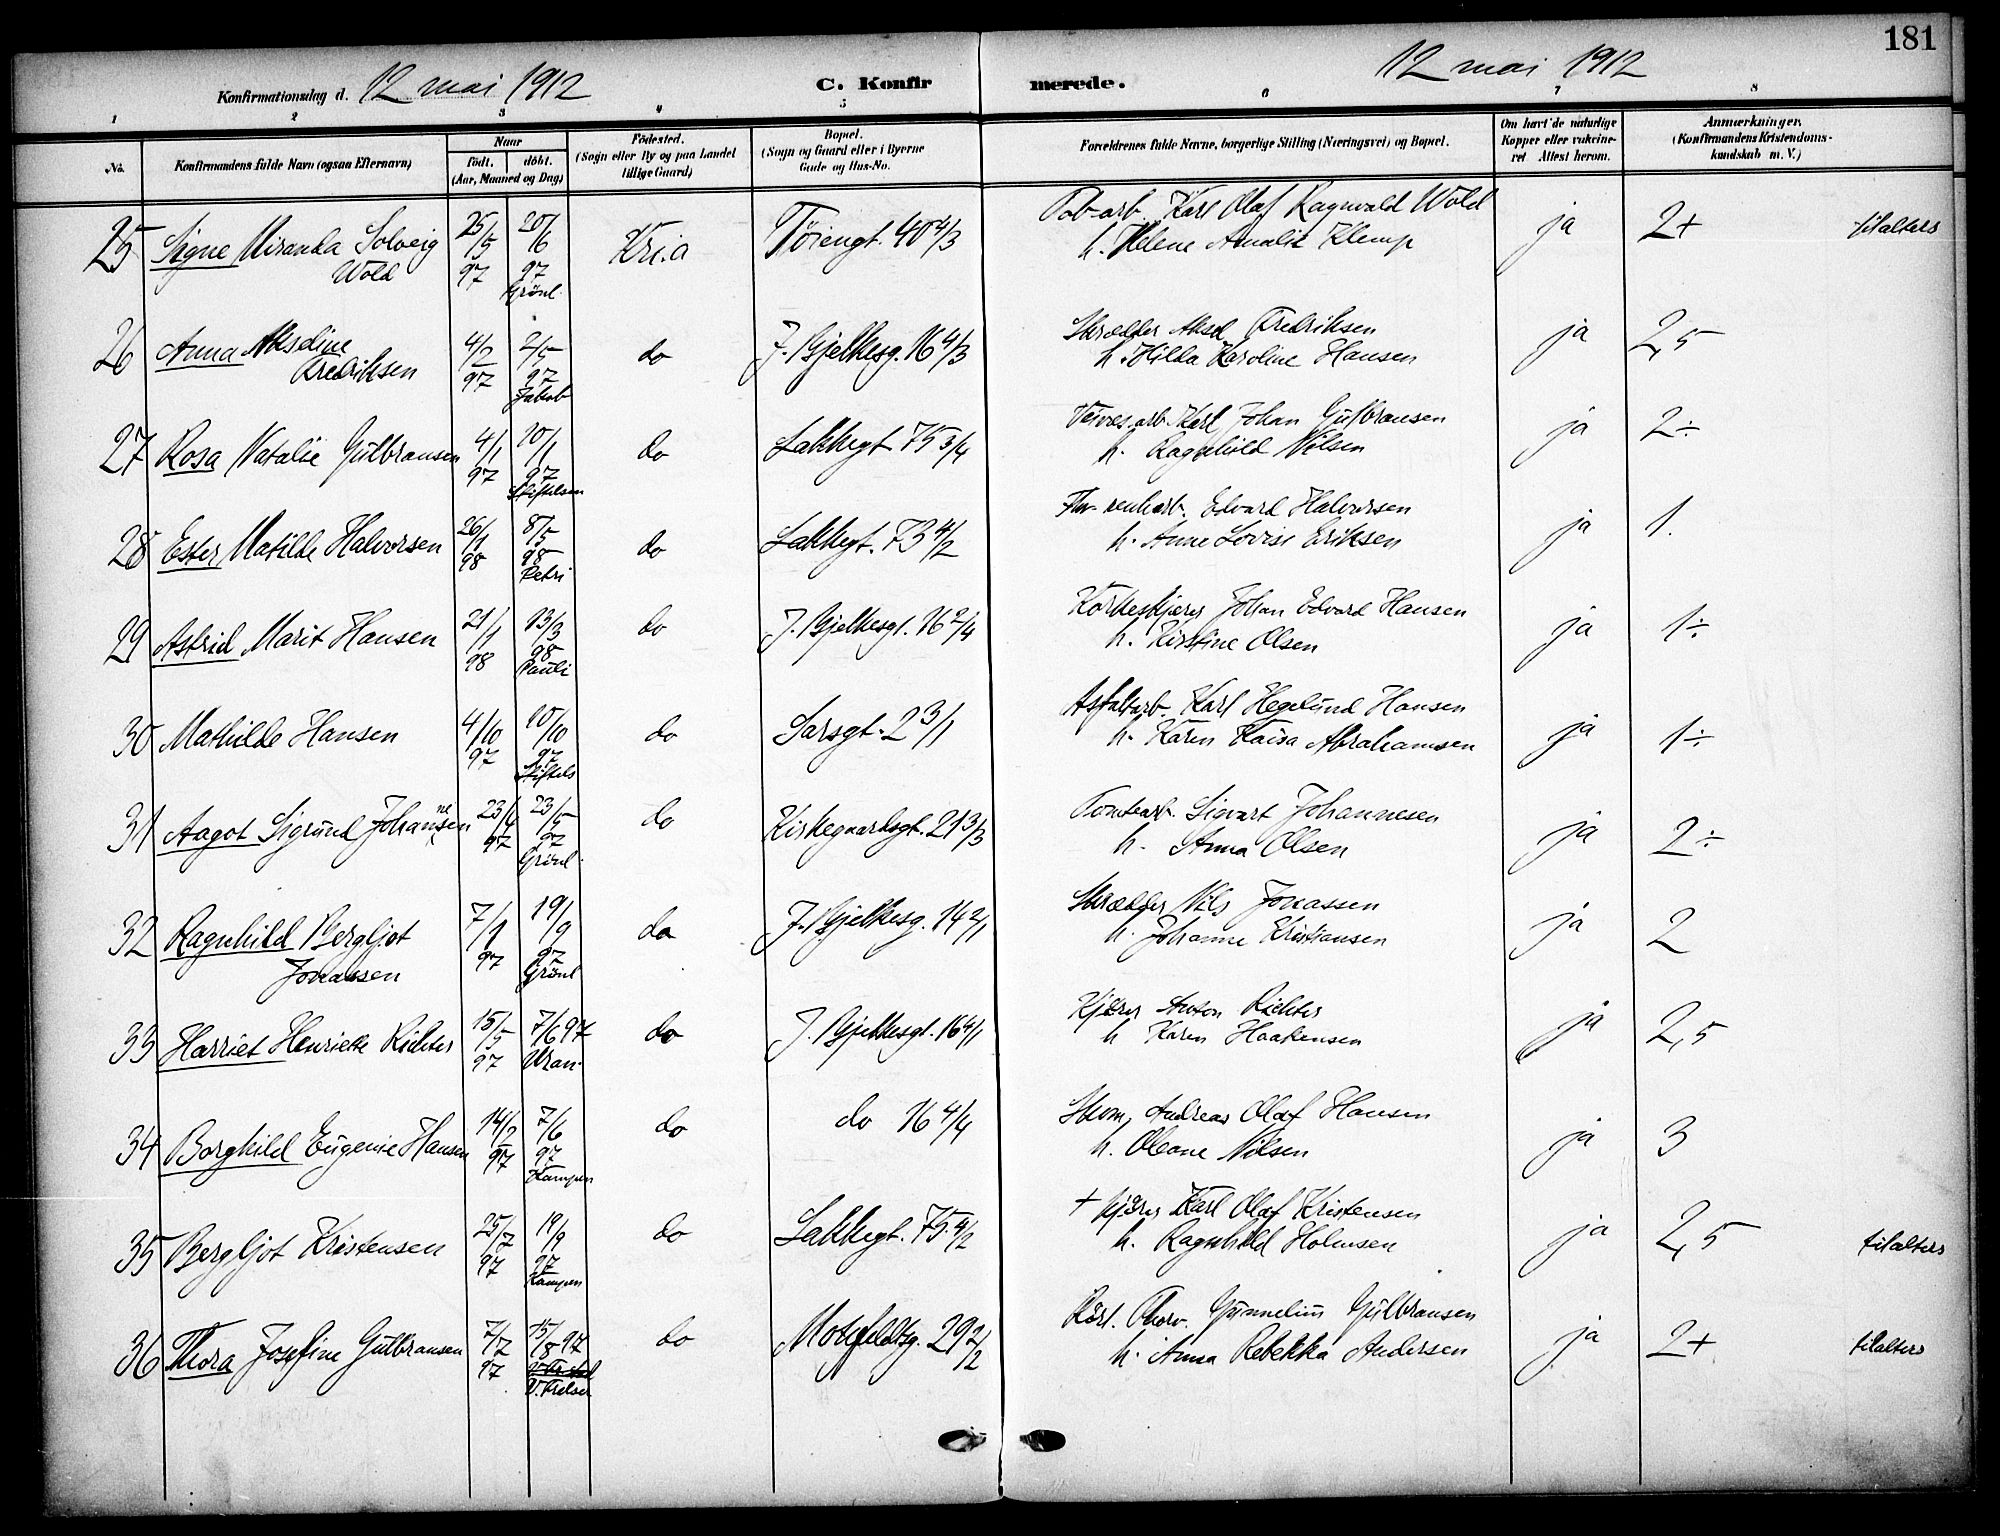 181
Konfirmationsdag d. 12 mai 1912 C. Konfirmerede. 12 mai 1912
1 2 3 4 5 6 7 8
No. Konfirmandens fulde Navn (ogsaa Efternavn) Naar födt. döbt. (Aar, Maaned og Dag) Födested. (Sogn eller By og paa Landet tillige Gaard) Bopæl. (Sogn og Gaard eller i Byerne Gade og Hus-No. Forældrenes fulde Navne, borgerlige Stilling (Næringsvei) og Bopæl. Om havt de naturlige Kopper eller vakcineret Attest herom. Anmærkninger. (Konfirmandens Kristendomskundskab m. V.)
25 Signe Miranda Solveig Wold 25/5 97 20/6 97 Grönl. Kr.a Töiengt. 40 4/3 Karl Olaf Ragnvald Wold
h. Helene Amalie Klemp ja 2+ tilalters
26 Anna Akseline Fredriksen 4/2 97 2/5 97 Jakob do J. Bjelkesg. 16 4/3 Skrædder Aksel Fredriksen
h. Hilda Karoline Hansen ja 2,5
27 Rosa Natalie Gulbransen 4/1 97 10/1 97 Stiftelsen do Lakkegt 75 3/4 Karl Johan Gulbransen
h. Ragnhild Nilsen ja 2÷
28 Ester Matilde Halvorsen 26/1 98 8/5 98 Petri do Lakkegt. 73 4/2 Edvard Halvorsen
h. Anne Lovise Eriksen ja 1.
29 Astrid Marit Hansen 21/1 98 13/3 98 Pauli do J. Bjelkesgt. 16 2/4 Korkeskjærer Johan Edvard Hansen
h. Kirstine Olsen ja 1÷
30 Mathilde Hansen 4/10 97 10/10 97 Stiftels do Sarsgt. 2 3/1 Asfaltarb. Karl Hegelund Hansen
h. Karen Kaisa Abrahamsen ja 1÷
31 Aagot Sigrund Johannesen 23/4 97 23/5 97 Grönl. do Kirkegaardsgt. 21 3/3 Tomtearb. Sigvart Johannesen
h. Anna Olsen ja 2÷
32 Ragnhild Bergljot Jonassen 7/1 97 19/9 97 Grönl do J. Bjelkesg. 14 2/1 Skrædder Nils Jonassen
h. Johanne Kristiansen ja 2
33 Harriet Henriette Richter 15/5 97 7/6 97 Uran. do J. Bjelkesgt. 16 4/1 Kjører Anton Richter
h Karen Haakensen ja 2,5
34 Borghild Eugenie Hansen 14/2 97 7/6 97 Kampen do do 16 4/4 Skom. Andreas Olaf Hansen
h. Oleane Nilsen ja 3
35 Bergljot Kristensen 25/7 97 19/9 97 Kampen do Lakkegt. 75 4/2 + kjører Karl Olaf Kristensen
h. Ragnhild Holmsen ja 2,5 tilalters
36 Thora Josefine Gulbransen 7/7 97 15/8 97 V. Frelser do Motzfeldtsg. 29 2/2 Rörl. Thorv. Gunnelius Gulbransen
h. Anna Rebekka Andersen ja 2+ tilalters